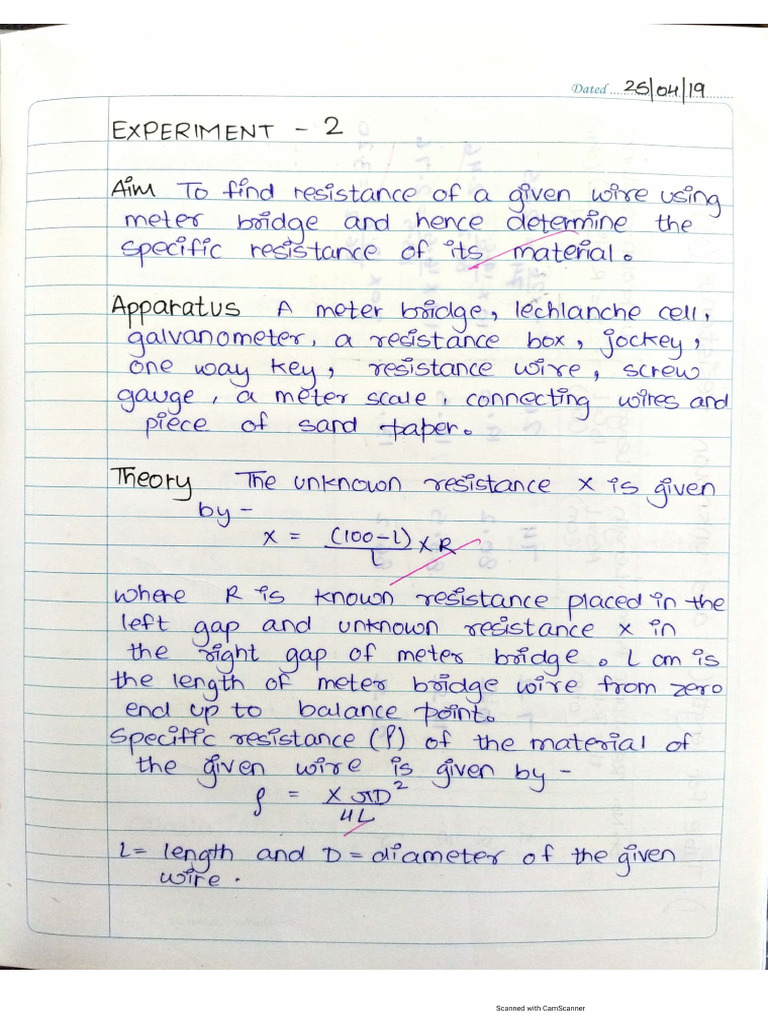 Dated 25/04/19
EXPERIMENT - 2
Aim To find resistance of a given wire using
meter bridge and hence determine the
specific resistance of its material.
Apparatus A meter bridge, lechlanche cell,
galvanometer, a resistance box, jockey,
one way key, resistance wire, screw
gauge, a meter scale, connecting wires and
piece of sand paper.
Theory The unknown resistance X is given
by -
X = (100-L)/L X R
where R is known resistance placed in the
left gap and unknown resistance X in
the right gap of meter bridge. L cm is
the length of meter bridge wire from zero
end up to balance point.
Specific resistance (ρ) of the material of
the given wire is given by -
ρ = XπD²/4L
L = length and D = diameter of the given
wire.
Scanned with CamScanner